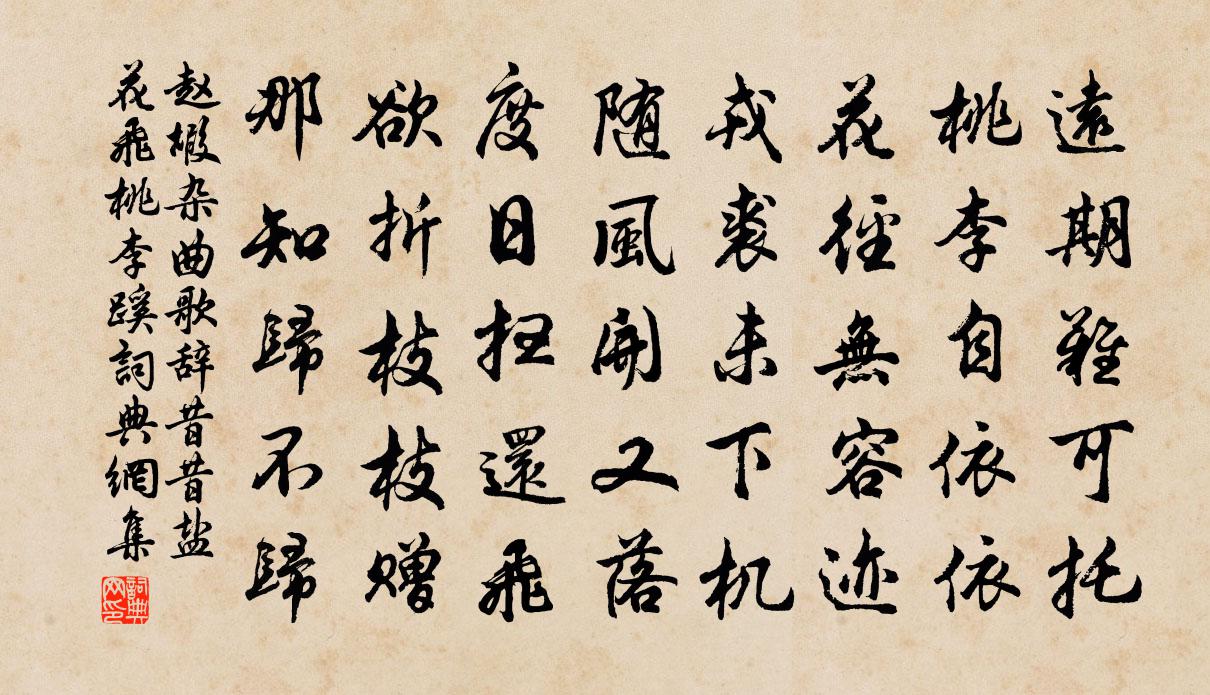 遠期難可托
桃李自依依
花徑無容迹
戎裘未下机
随風開又落
度日扫還飛
欲折枝枝赠
那知歸不歸
赵嘏杂曲歌辞昔昔盐
花飛桃李蹊詞典網集
詞典网印